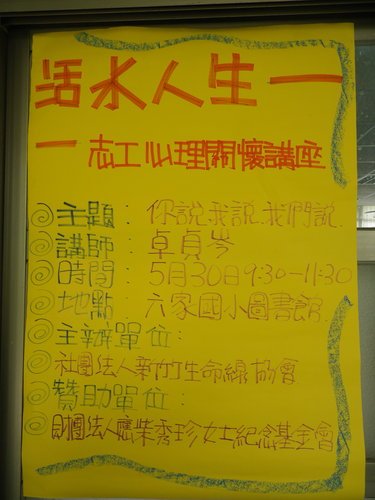 活水人生—
—志工心理關懷講座
主題：你說.我說.我們說.
講師：卓貞岑
時間：5月30日9:30-11:30
地點：六家國小圖書館.
主辦單位：
社團法人新竹生命線協會.
贊助單位：
財團法人應柴秀珍女士紀念基金會